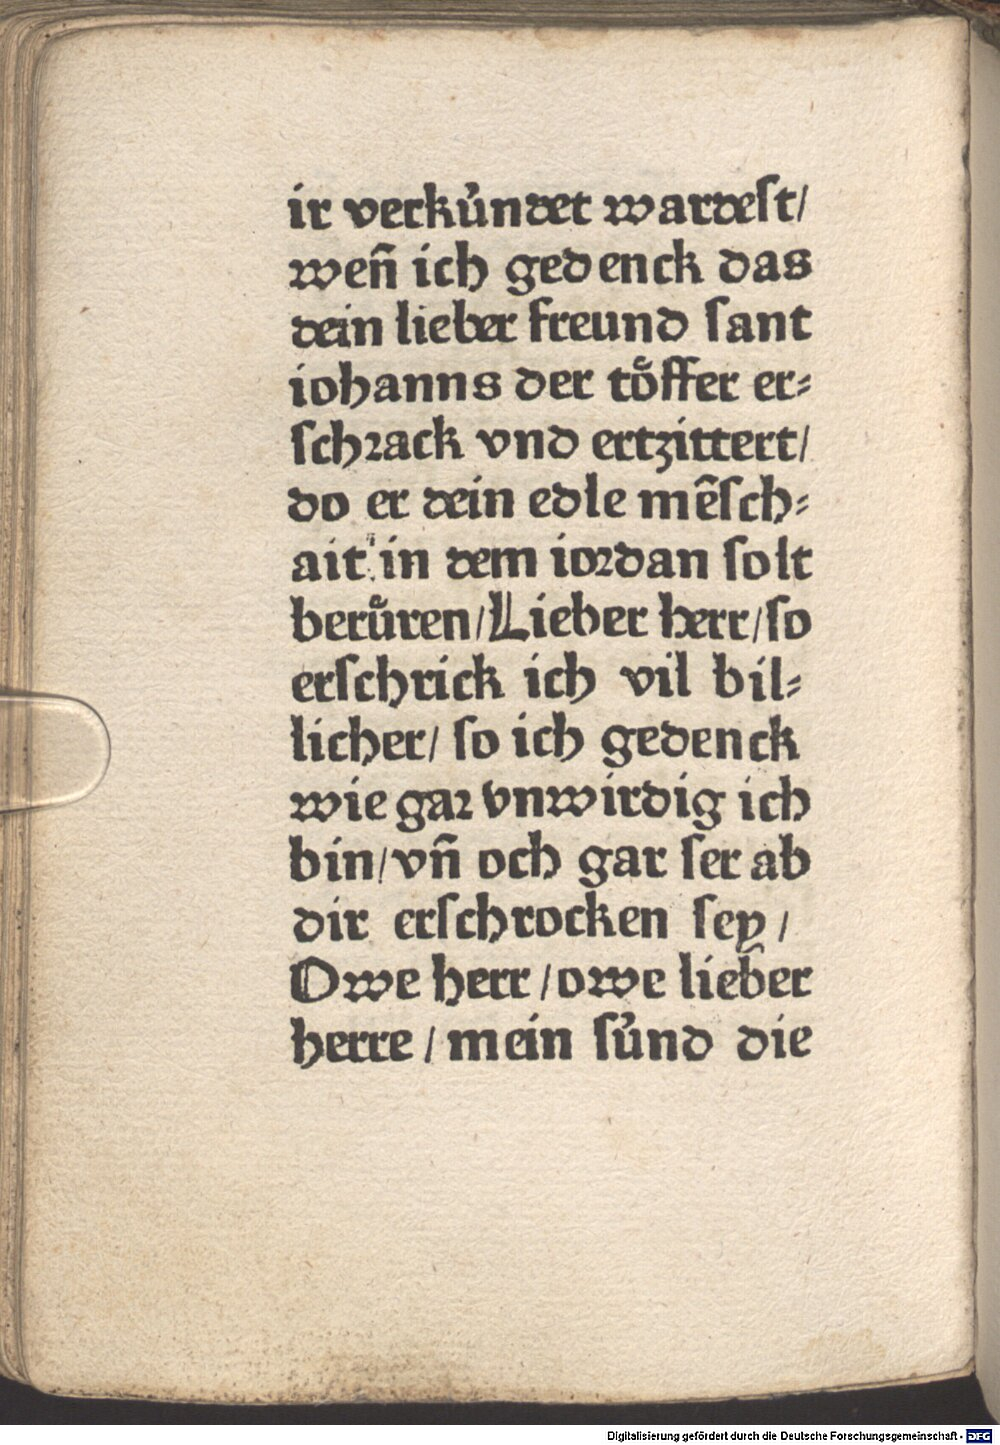 ir verkůndet wardest/
weñ ich gedenck das
dein lieber freund sant
iohanns der toͤffer er⸗
schrack vnd ertzittert/
do er dein edle mẽsch⸗
ait in dem iordan solt
beruͤren/Lieber herr/so
erschrick ich vil bil⸗
licher/ so ich gedenck
wie gar vnwirdig ich
bin/vñ och gar ser ab
dir erschrocken sey /
Owe herr /owe lieber
herre / mein sůnd die
Digitalisierung gefördert durch die Deutsche Forschungsgemeinschaft - DFG